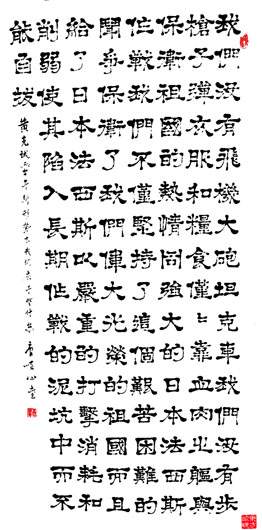 我們沒有飛機大砲坦克車我們沒有步
槍子彈衣服和糧食僅〻靠血肉之軀與
保衛祖國的熱情同強大的日本法西斯
作戰我們不僅堅持了這個艱苦困難的
鬭爭保衛了我們偉大光榮的祖國而且
給了日本法西斯以嚴重的打擊消耗和
削弱使其陷入長期作戰的泥坑中而不
能自拔
黃克誠